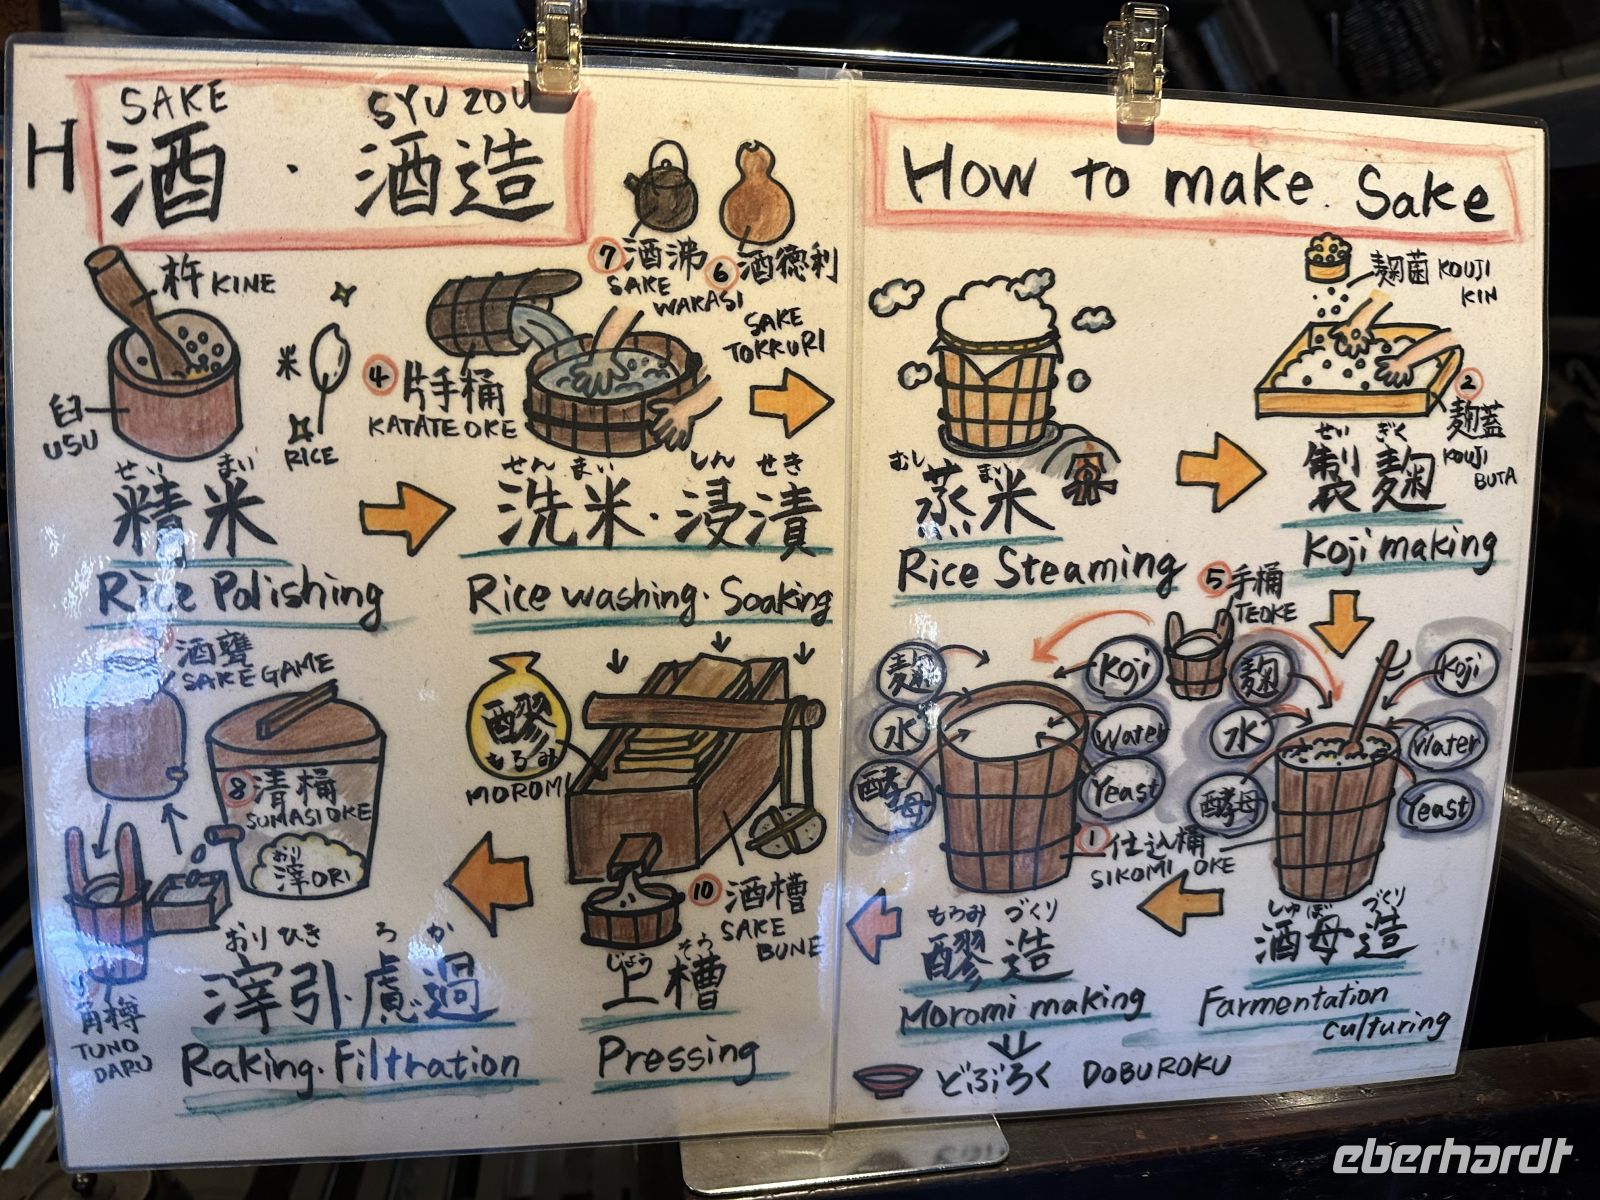 H
SAKE
SYU ZOU
酒・酒造
How to make Sake
⑦酒沸
SAKE
WAKASI
⑥酒徳利
SAKE
TOKKURI
杵 KINE
臼
USU
米
RICE
せいまい
精米
Rice Polishing
④片手桶
KATATE OKE
せんまい しんせき
洗米・浸漬
Rice washing・Soaking
むし まい
蒸米
Rice Steaming
麹菌 KOUJI
KIN
②
麹蓋
KOUJI
BUTA
せい ぎく
製麹
Koji making
⑤手桶
TEOKE
麹
水
酵母
Koji
Water
Yeast
麹
水
酵母
Koji
Water
Yeast
①仕込桶
SIKOMI OKE
しゅぼ づくり
酒母造
Farmentation
culturing
もろみ づくり
醪造
Moromi making
どぶろく DOBUROKU
醪
もろみ
MOROMI
⑩酒槽
SAKE
BUNE
じょう そう
上槽
Pressing
酒甕
SAKE GAME
⑧清桶
SUMASI OKE
おり
滓 ORI
角樽
TUNO
DARU
おり ひき ろ か
滓引・濾過
Raking・Filtration
eberhardt